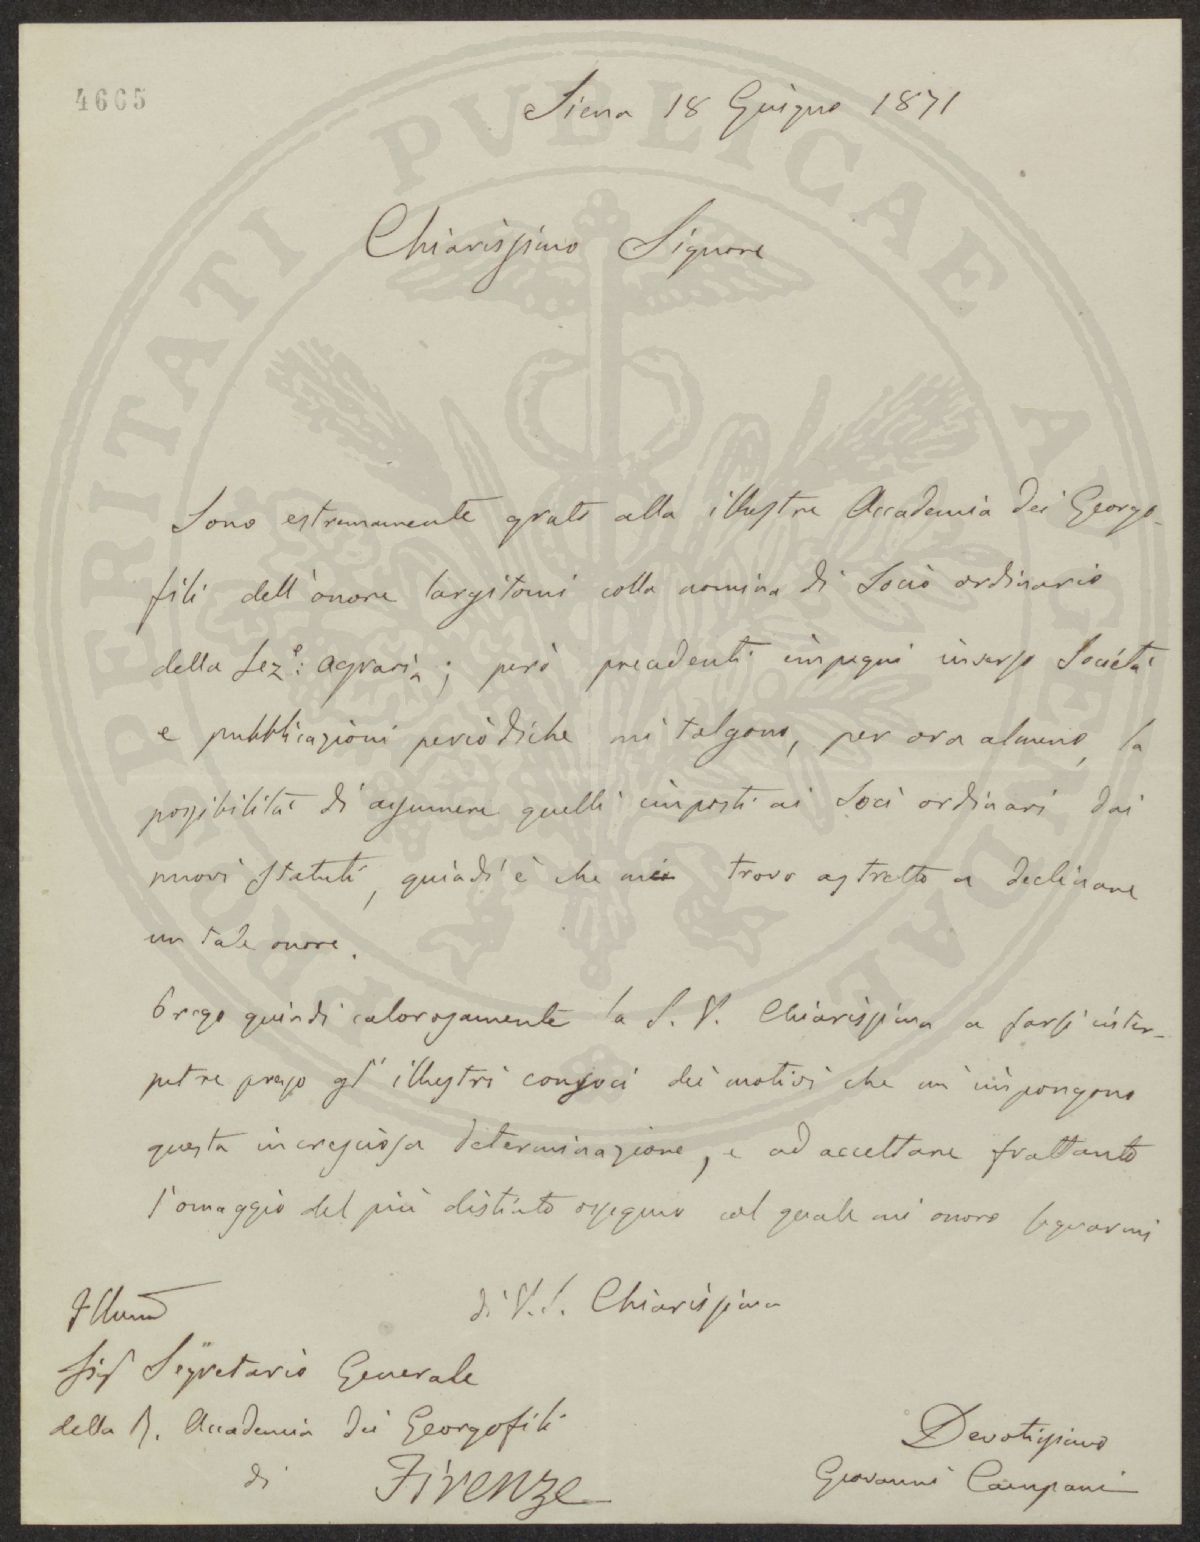 4605
Siena 18 Giugno 1871
Chiarissimo Signore
Sono estremamente grato alla illustre Accademia dei Georgo-
fili dell'onore largitomi colla nomina di Socio ordinario
della Sez.e: agraria; però precedenti impegni inverso Società
e pubblicazioni periodiche mi tolgono, per ora almeno, la
possibilità di assumere quelli imposti ai Soci ordinari dai
nuovi Statuti, quindi è che mi trovo astretto a declinare
un tale onore.
Prego quindi calorosamente la S. V. Chiarissima a farsi inter-
petre presso gl'illustri consoci dei motivi che mi impongono
questa incresciosa determinazione, e ad accettare frattanto
l'omaggio del più distinto ossequio col quale mi onoro segnarmi
di V. S. Chiarissima
Illumo
Sigr Segretario Generale
della R. Accademia dei Georgofili
di Firenze
Devotissimo
Giovanni Campani
PROSPERITATI PVBLICAE AVGENDAE